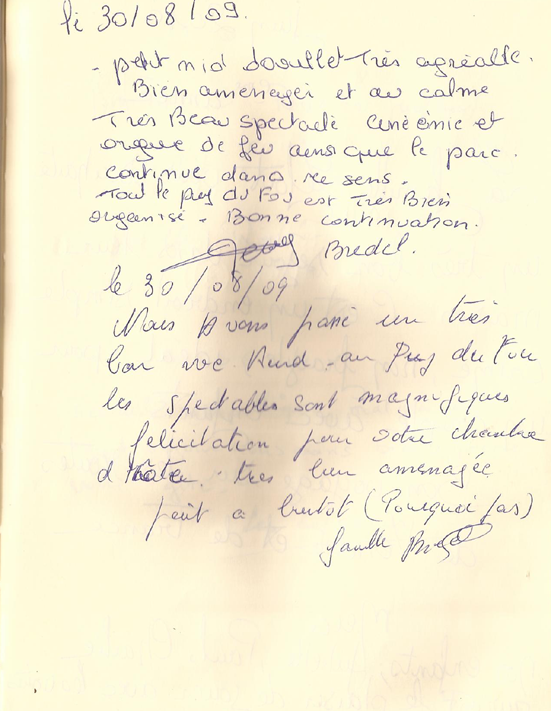 le 30/08/09.
- petit nid douillet Très agréable.
Bien amenager et au calme
Très Beau spectacle cinéémie et
orgue de feu ainsi que le parc.
continue dans ce sens.
Tout le puy du Fou est Très Bien
organisé - Bonne continuation.
Bredel.
le 30/08/09
Nous Avons passé un très
bon wee Kend - au Puy du Fou
les spectables sont magnifiques
félicitation pour votre chambre
d'hôte. très bien amenagée
peut a bientot (Pourquoi pas)
famille